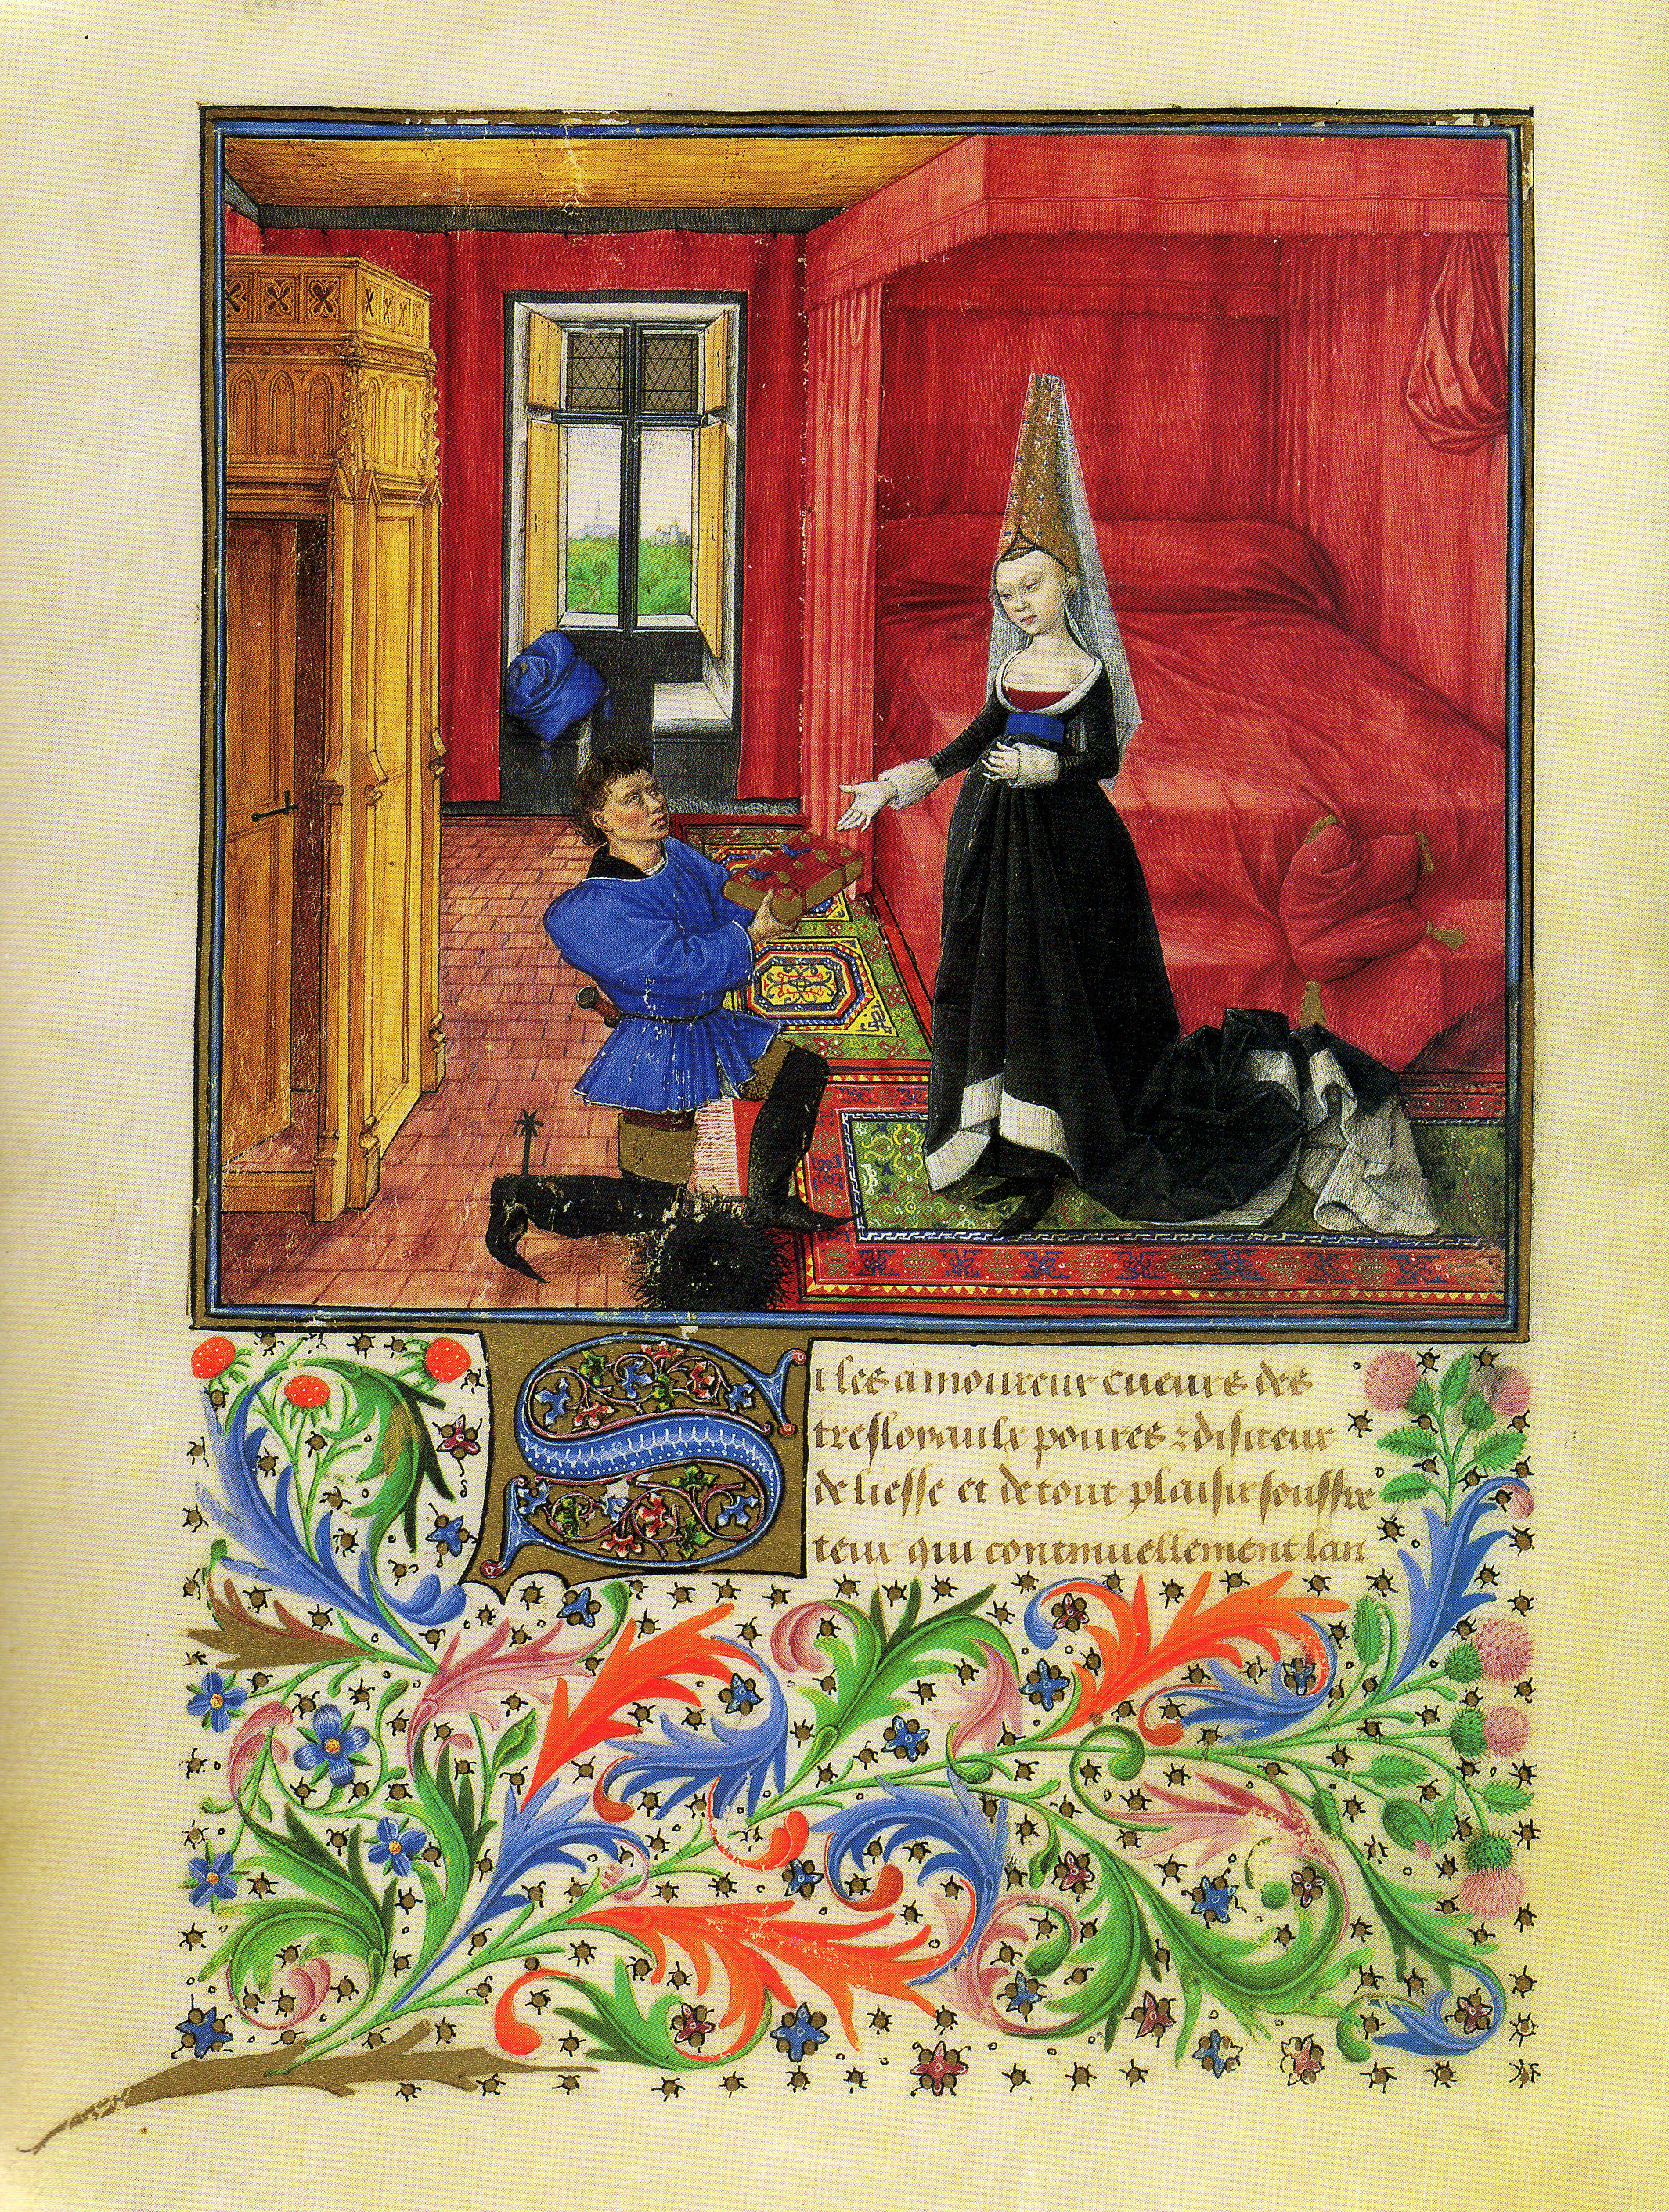 Si les amoureux cueurs des
tresloyaulx poures ⁊ disiteux
de liesse et de tout plaisir souffre
teux qui continuellement lan